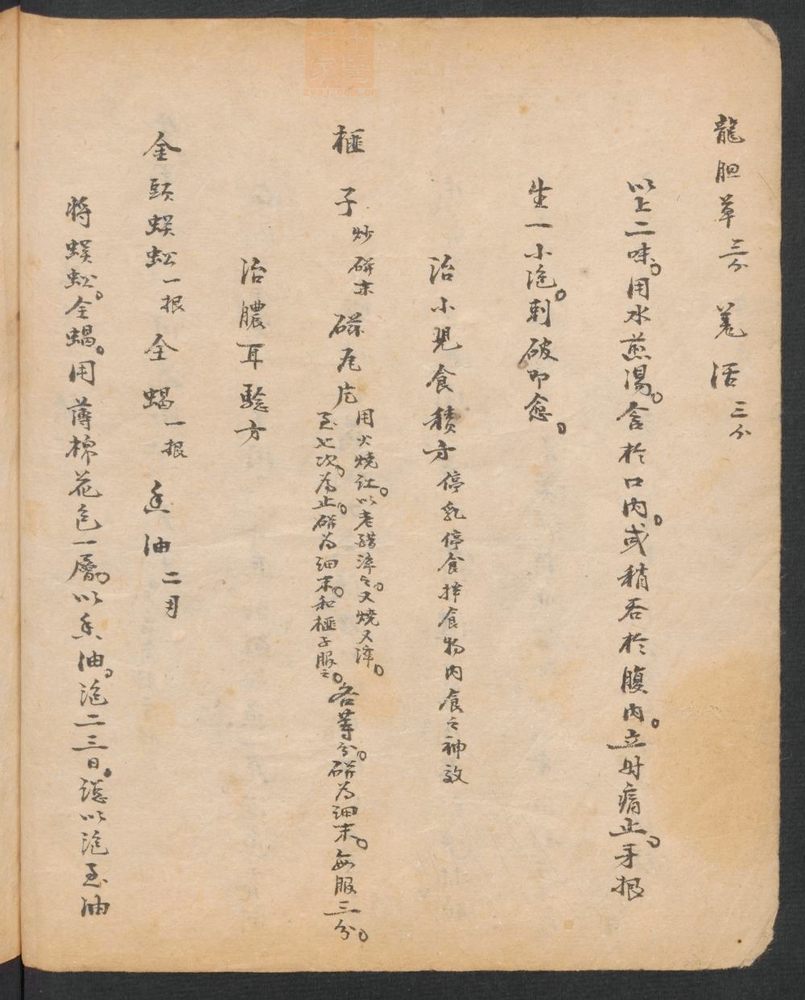 龍胆草三分 羌活三分
以上二味。用水煎湯。含於口內。或稍吞於腹內。立时痛止。牙根
生一小泡。刺破即愈。
治小児食積方 停乳停食拌食物內食之神效
榧子炒研末 磁瓦片用火燒紅。以老醋淬之。又燒又淬。至七次。為止。研為细末。和榧子服之。各等分。研為细末。每服三分。
治膿耳驗方
金頭蜈蚣一根 全蝎一根 香油二两
將蜈蚣。全蝎。用薄棉花包一層。以香油。泡二三日。總以泡至油